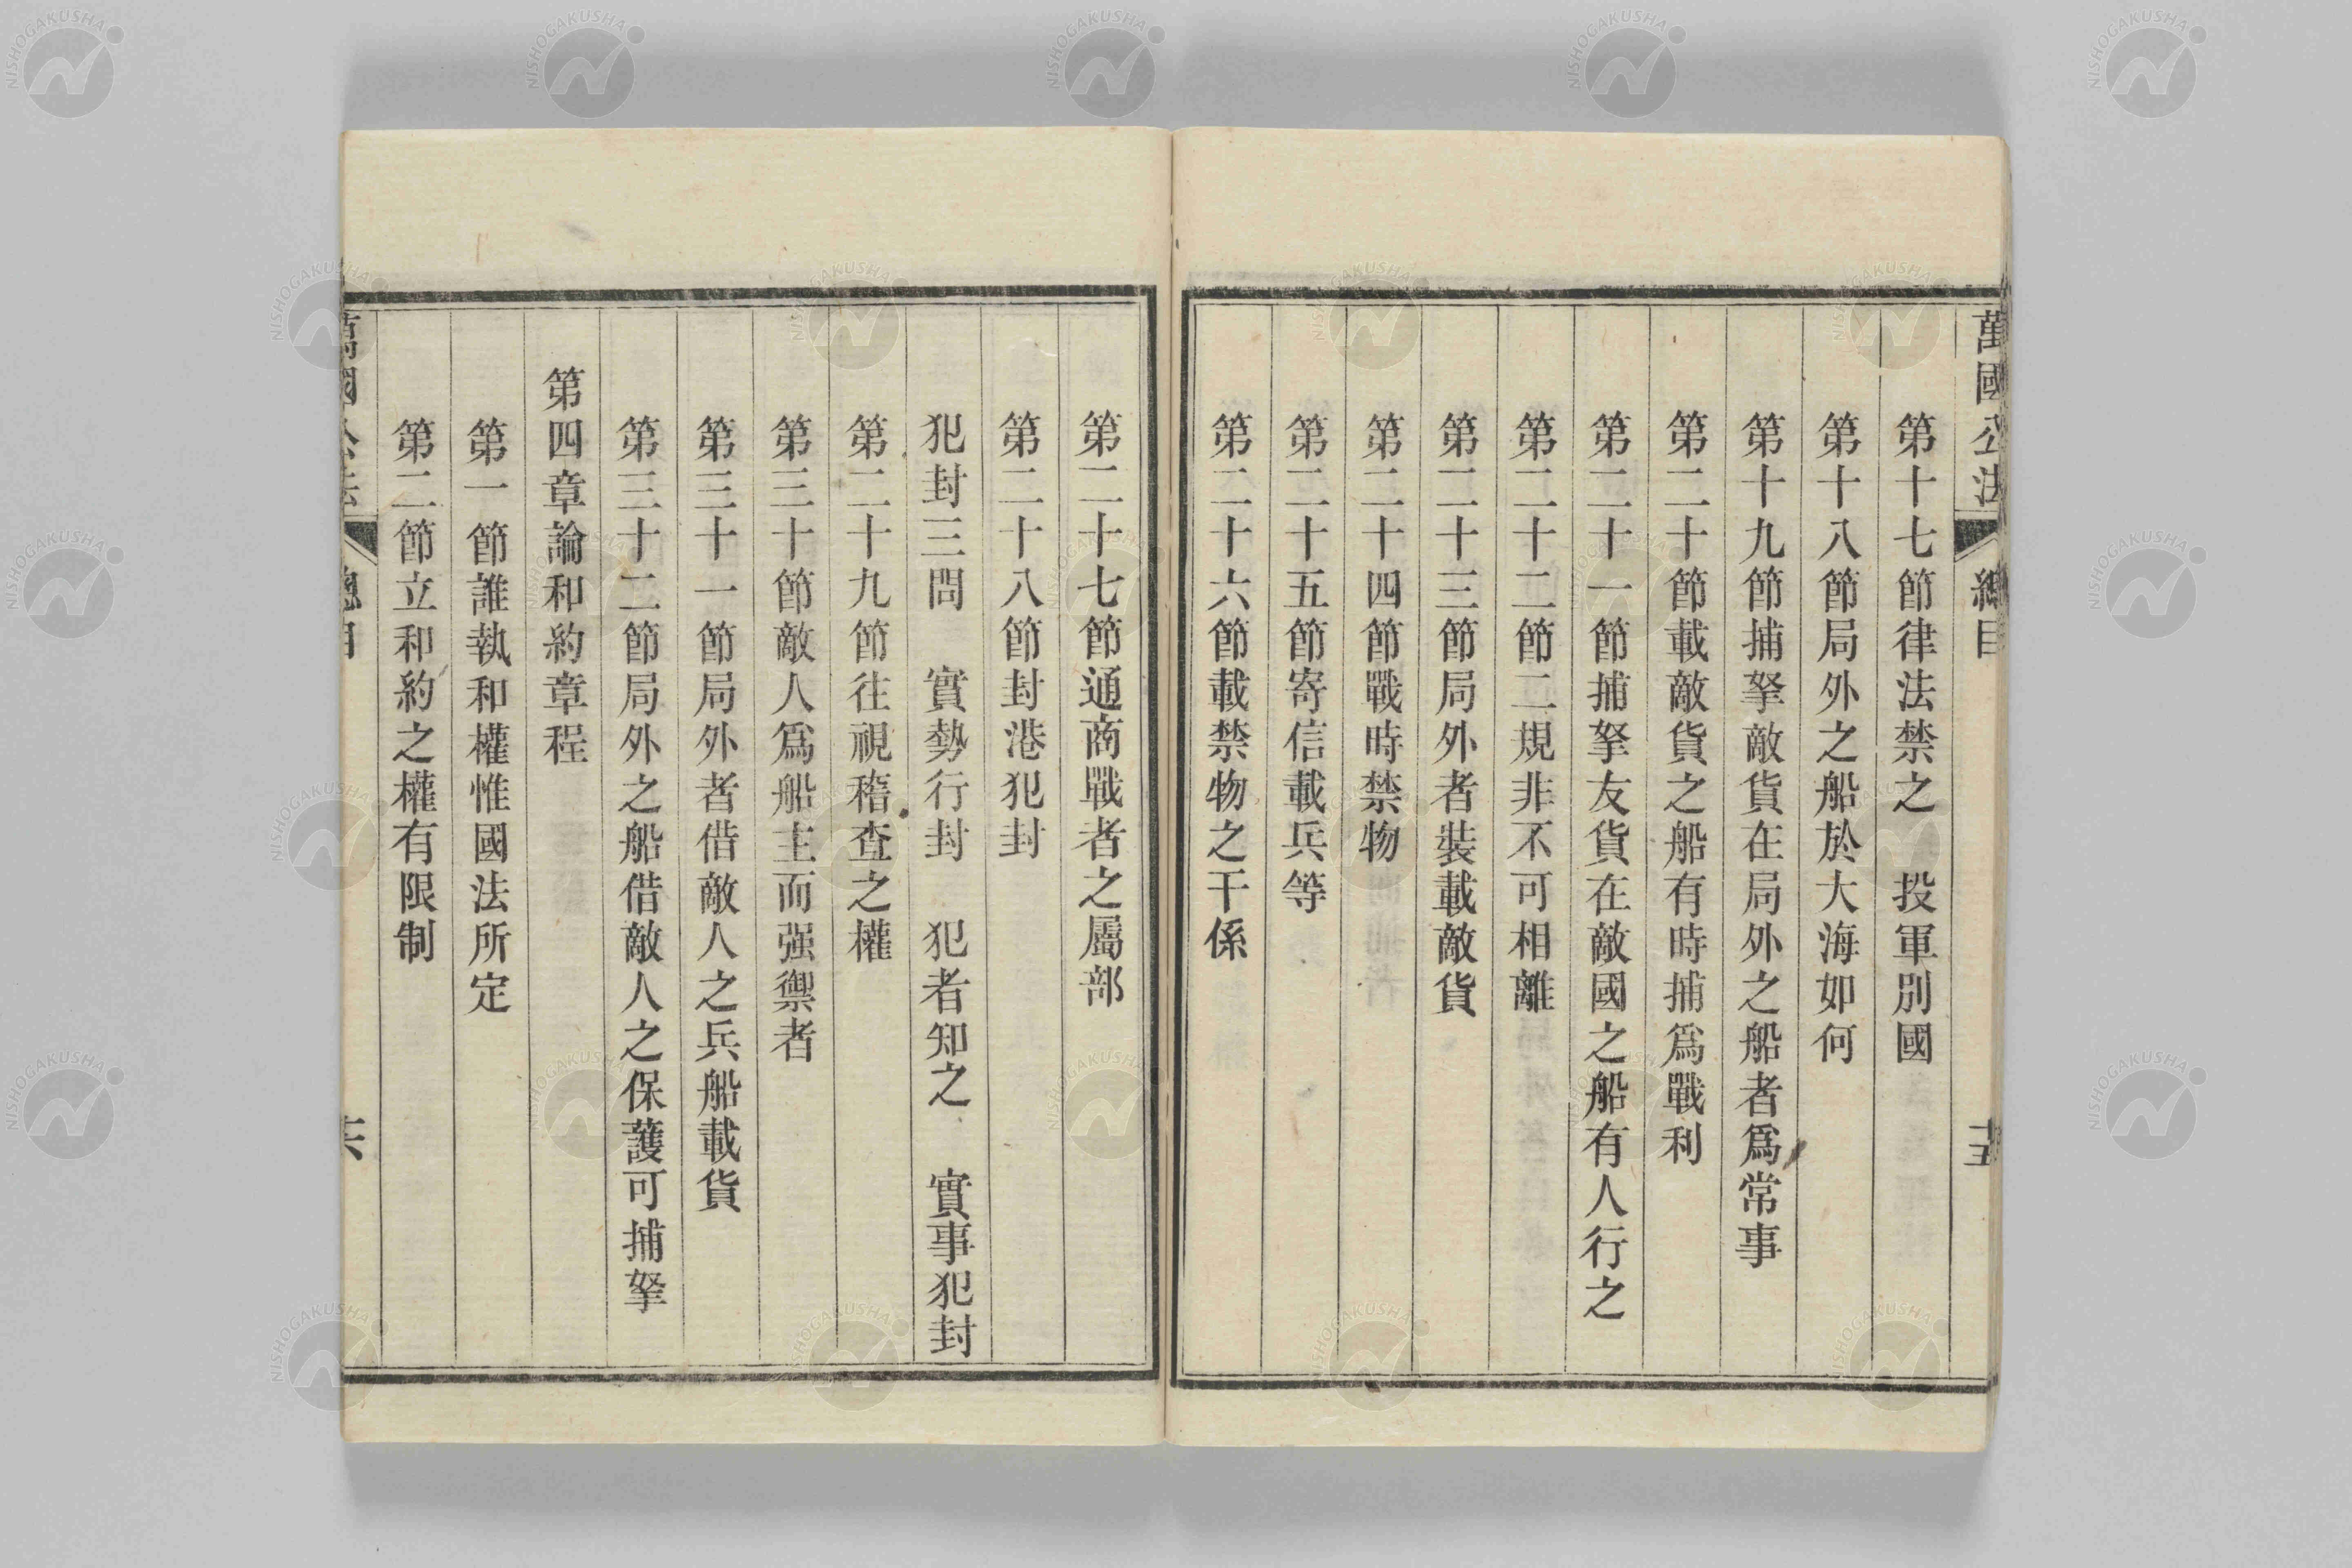 萬國公法 總目
第十七節律法禁之 投軍別國
第十八節局外之船於大海如何
第十九節捕拏敵貨在局外之船者爲常事
第二十節載敵貨之船有時捕爲戰利
第二十一節捕拏友貨在敵國之船有人行之
第二十二節二規非不可相離
第二十三節局外者裝載敵貨
第二十四節戰時禁物
第二十五節寄信載兵等
第二十六節載禁物之干係
第二十七節通商戰者之屬部
第二十八節封港犯封
犯封三問 實勢行封 犯者知之 實事犯封
第二十九節往視稽查之權
第三十節敵人爲船主而强禦者
第三十一節局外者借敵人之兵船載貨
第三十二節局外之船借敵人之保護可捕拏
第四章論和約章程
第一節誰執和權惟國法所定
第二節立和約之權有限制
萬國公法 總目
NISHOGAKUSHA